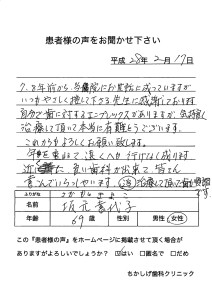 患者様の声をお聞かせ下さい
平成 28年 2月 17日
7、8年前から、貴医院にお世話に成っていますが
いつもやさしく接して下さる先生に感謝しております
自分で歯に対するコンプレックスがありますが、気持良く
治療して頂いて本当に有難とうございます。
これからもよろしくお願い致します。
年を重ねて遠くへ行けなく成ります
近くに良い歯科が出来て皆さん
喜んでいらっしゃいます。
名前
年齢 69歳 性別 男性 女性
この『患者様の声』をホームページに掲載させて頂く場合が
ありますがよろしいでしょうか? ☑はい □匿名で □だめ
ちかしげ歯科クリニック